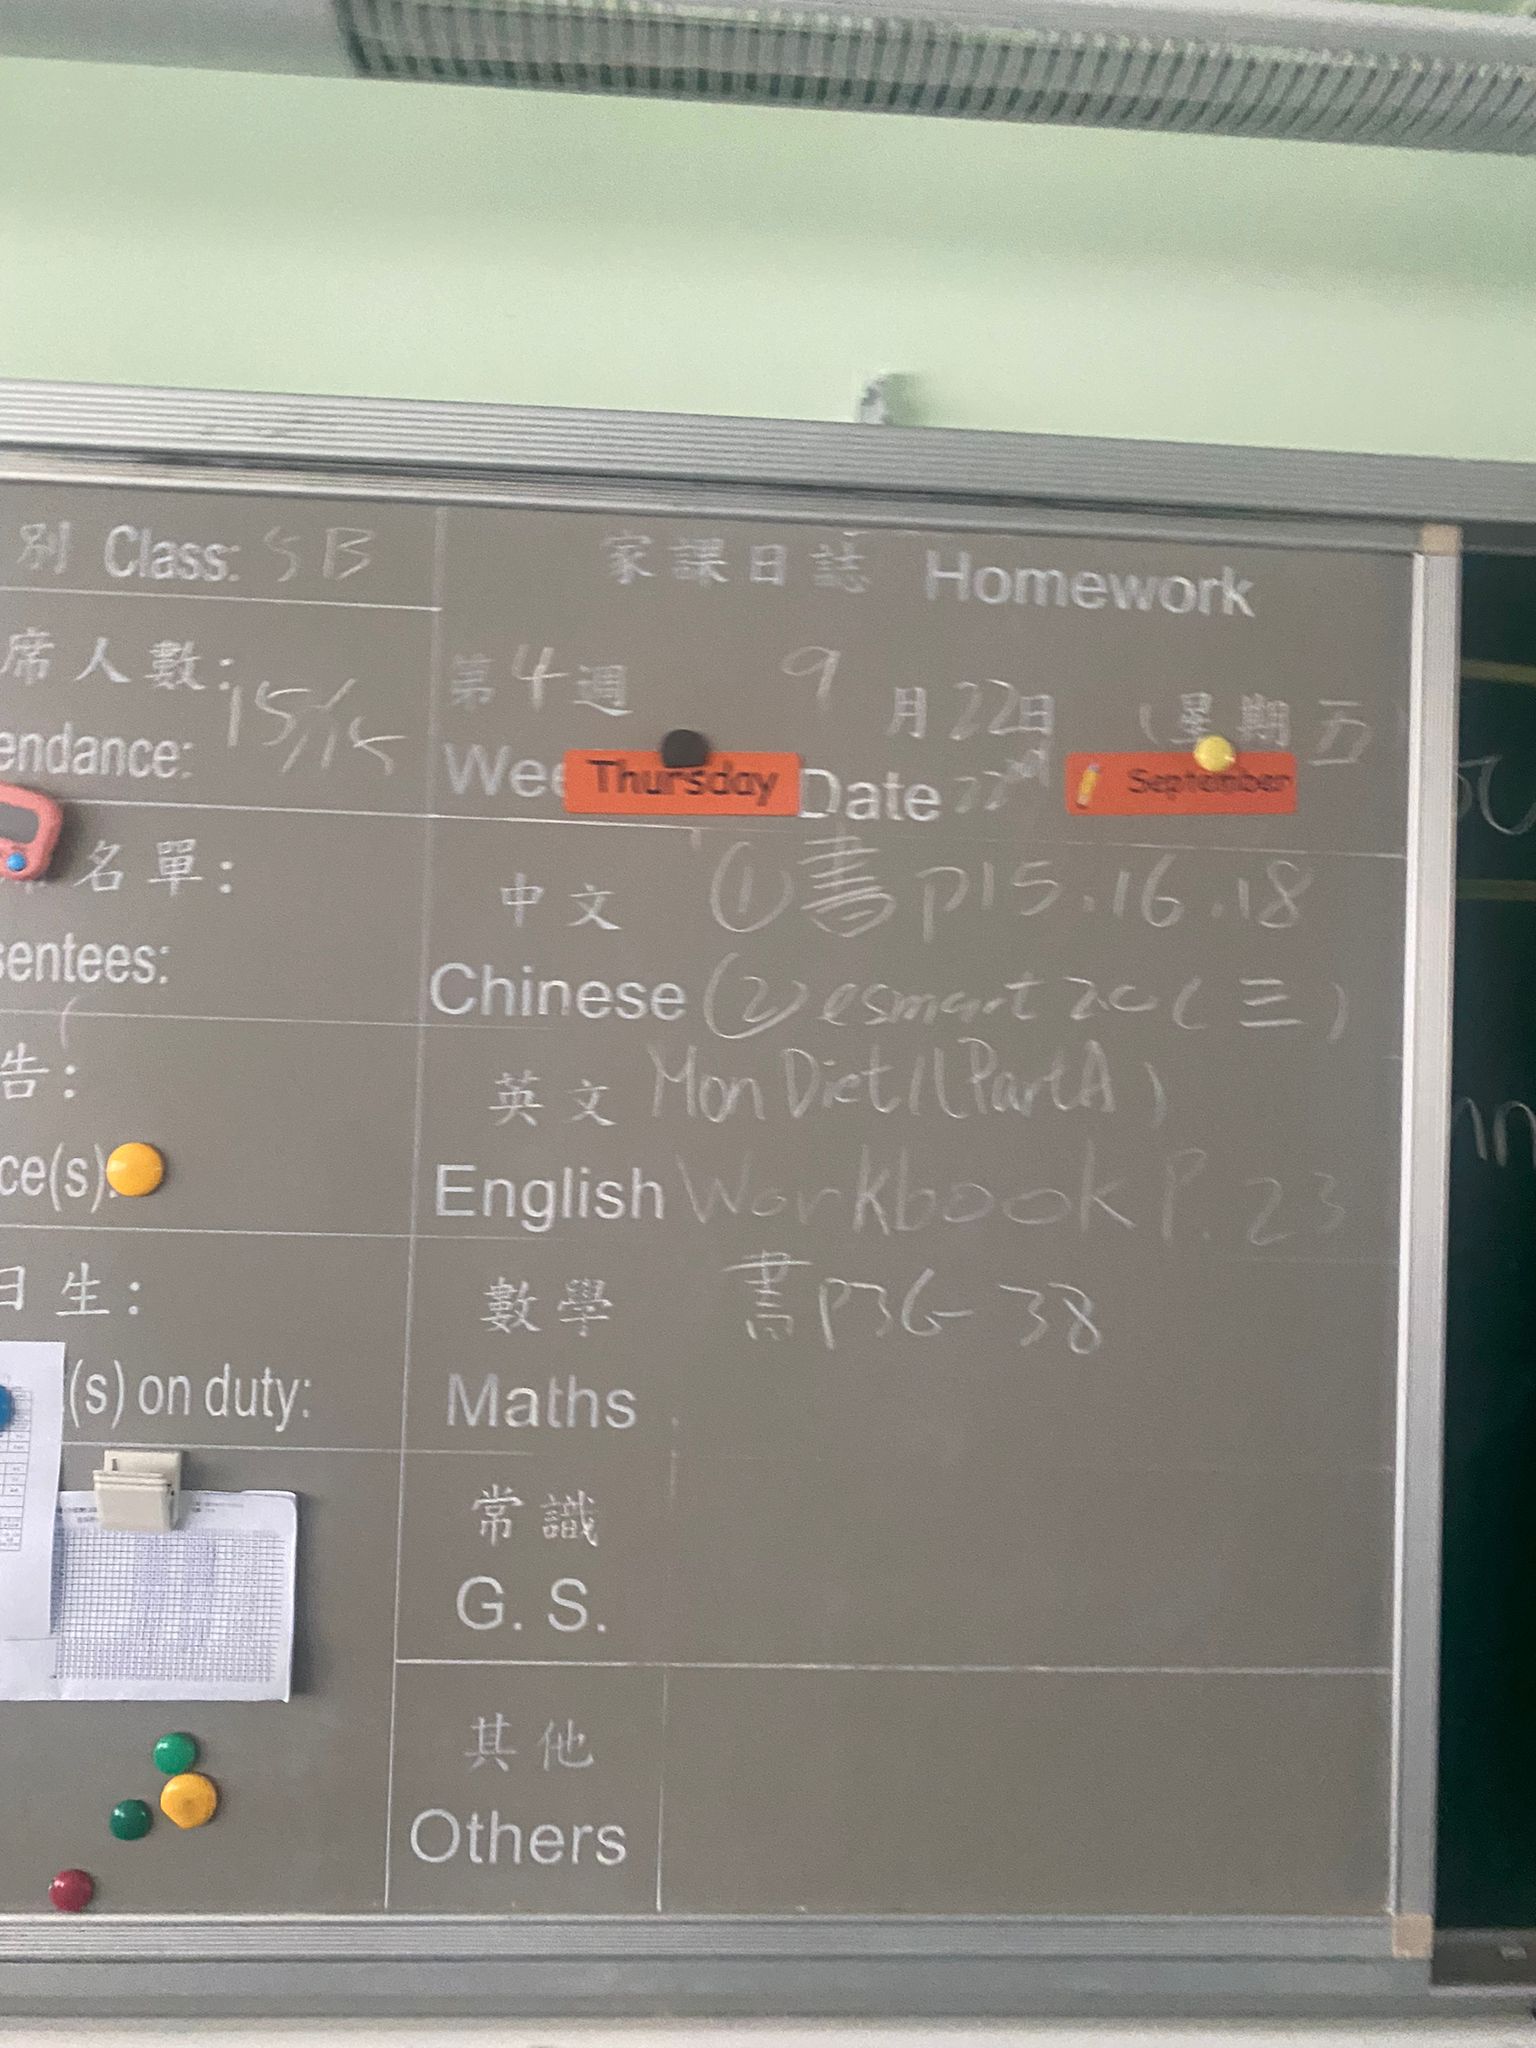 別 Class: 5B
席人數: 15/15
endance:
名單:
sentees:
告:
ce(s):
日生:
(s) on duty:
家課日誌 Homework
第4週 9月22日 (星期五)
Wee Thursday Date 22nd September
中文 ①書 p15.16.18
Chinese ② esmart 2.0 (三)
英文 Mon Dict 1 (Part A)
English Workbook P. 23
數學 書 P36-38
Maths
常識
G. S.
其他
Others